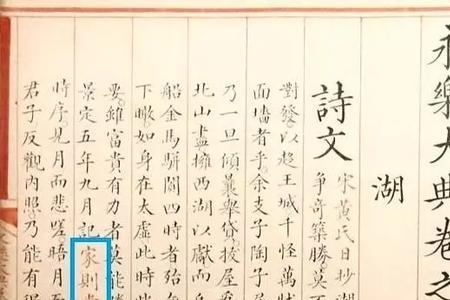 永樂大典卷之
湖
詩文
宋黃氏日抄湖
爭奇築勝莫
對發以趍王城千恠萬狀
面墻者乎余支子陶子
乃一旦傾囊舉貸
屋
北山盡擁西湖以獻而
船金馬駢闐四時者殆
下瞰如身在太虛此時此
要雖富貴有力者莫能
景定五年九月記家則
時序見月而悲嗟踏月
君子反觀內照乃能有